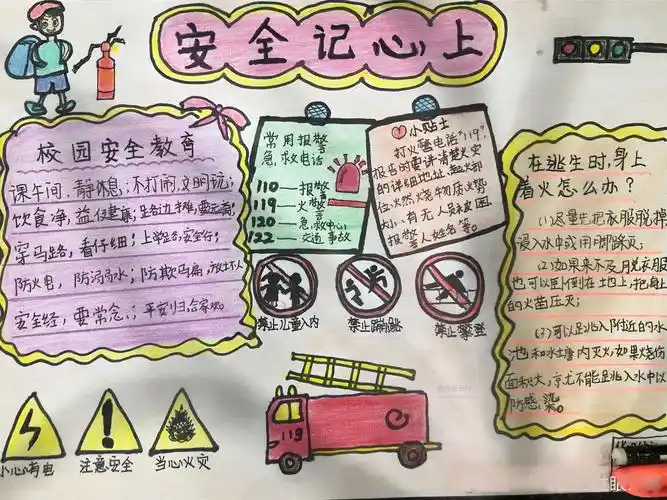 安全记心上
校园安全教育
课午间，静休息；不打闹，文明玩；
饮食净，益健康；
穿马路，看仔细；上学路，安全行；
防火电，防溺水；防欺骗，
安全经，要常念；平安归，合家欢。
常用报警
急救电话
110——报警
119——火警
120——急救中心
122——交通事故
小贴士
打火警电话"119"
报告时要讲清楚火灾
的详细地址、起火部
位、火然烧物质火势
大小、有无人员被困
报警人姓名等。
禁止儿童入内
禁止蹦跳
禁止攀登
119
小心有电
注意安全
当心火灾
在逃生时,身上
着火怎么办?
(1)尽量先把衣服脱掉
浸入水中或用脚踩灭;
(2)如果来不及脱衣服
也可以卧倒在地上,把身上
的火苗压灭;
(3)可以跳入附近的水
池和水塘内灭火,如果烧伤
面积大,就不能跳入水中以
防感染。